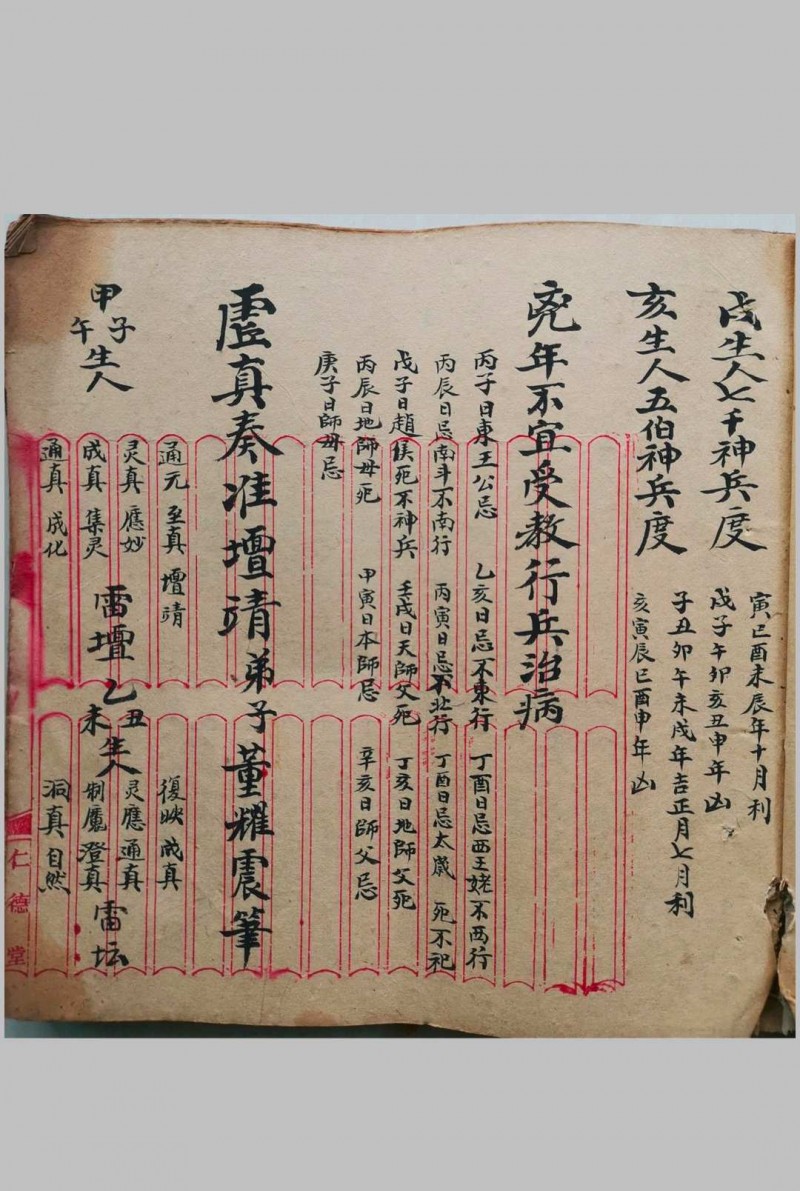 戌生人七千神兵度 寅巳酉未辰年十月利
戊子午卯亥丑申年凶
亥生人五伯神兵度 子丑卯午未戌年吉正月七月利
亥寅辰巳酉申年凶
兇年不宜受教行兵治病
丙子日東王公忌 乙亥日忌不東行 丁酉日忌西王姥不西行
丙辰日忌南斗不南行 丙寅日忌不北行 丁酉日忌太歲 死不祀
戊子日趙侯死不神兵 壬戌日天師父死 丁亥日地師父死
丙辰日地師母死 甲寅日本師忌 辛亥日師父忌
庚子日師母忌
虛真奏准壇靖弟子董耀震筆
甲子午生人
通元 至真 壇靖
灵真 應妙
成真 集灵
通真 成化
雷壇
乙丑未生人
復映 成真
灵應 通真
制魔 澄真
洞真 自然
雷坛
仁德堂